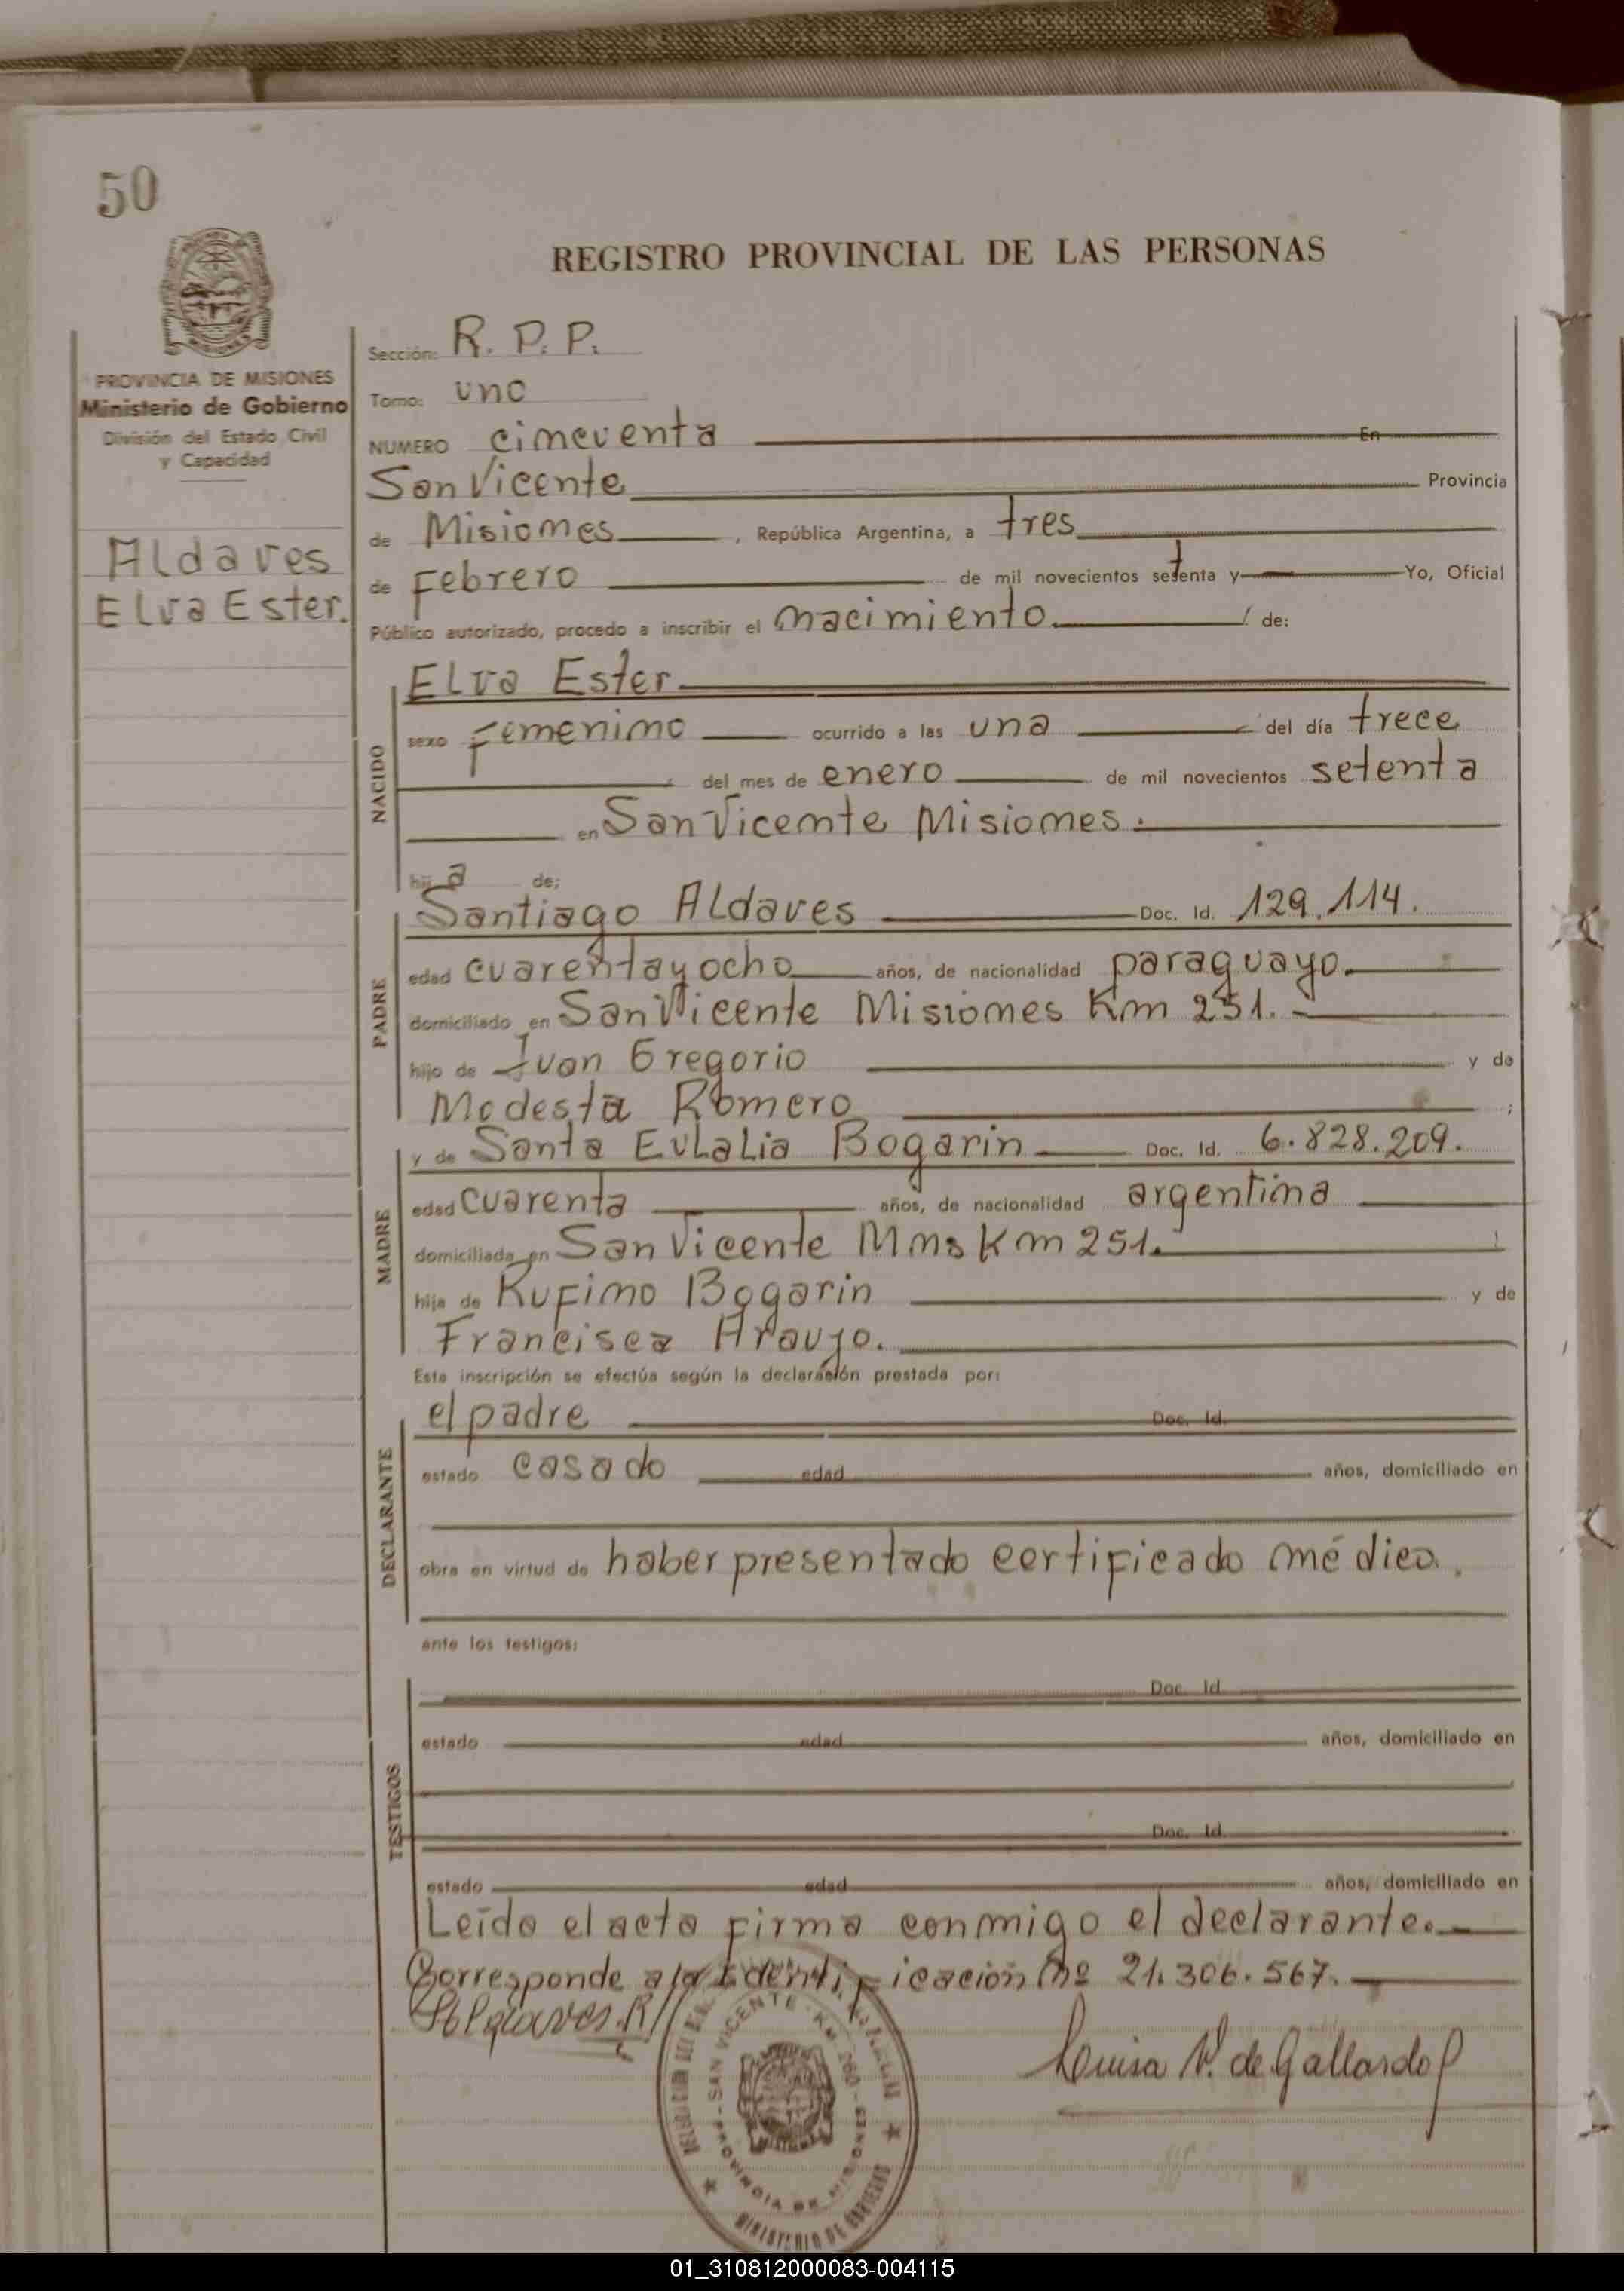 50
REGISTRO PROVINCIAL DE LAS PERSONAS
PROVINCIA DE MISIONES
Ministerio de Gobierno
División del Estado Civil
y Capacidad
Aldaves
Elva Ester.
Sección: R. P. P.
Tomo: uno
NUMERO cincuenta En
San Vicente Provincia
de Misiones, República Argentina, a tres
de Febrero de mil novecientos setenta y Yo, Oficial
Público autorizado, procedo a inscribir el nacimiento. de:
NACIDO
Elva Ester
sexo Femenino ocurrido a las una del día trece
del mes de enero de mil novecientos setenta
en San Vicente Misiones.
hij a de:
PADRE
Santiago Aldaves Doc. Id. 129.114.
edad cuarenta y ocho años, de nacionalidad paraguayo.
domiciliado en San Vicente Misiones Km 251.
hijo de Juan Gregorio y de
Modesta Romero ;
MADRE
y de Santa Eulalia Bogarin Doc. Id. 6.828.209.
edad cuarenta años, de nacionalidad argentina
domiciliada en San Vicente Mnes Km 251.
hija de Rufino Bogarin y de
Francisca Araujo.
Esta inscripción se efectúa según la declaración prestada por:
DECLARANTE
el padre Doc. Id.
estado casado edad años, domiciliado en
obra en virtud de haber presentado certificado médico.
ante los testigos:
TESTIGOS
Doc. Id.
estado edad años, domiciliado en
Doc. Id.
estado edad años, domiciliado en
Leído el acta firma conmigo el declarante.
Corresponde a la Identificación Nº 21.306.567.
Luisa V. de Gallardo
SAN VICENTE - KM. 260 -
PROVINCIA DE MISIONES
MINISTERIO DE GOBIERNO
01_310812000083-004115